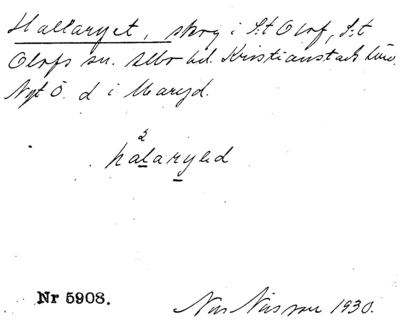 Hallaryet, skog i S:t Olof, S:t
Olofs sn. Albo hd. Kristianstads län.
Nyt Ö. d i Maryd.
2
halaryed
Nr 5908.
Nils Nilsson 1930.